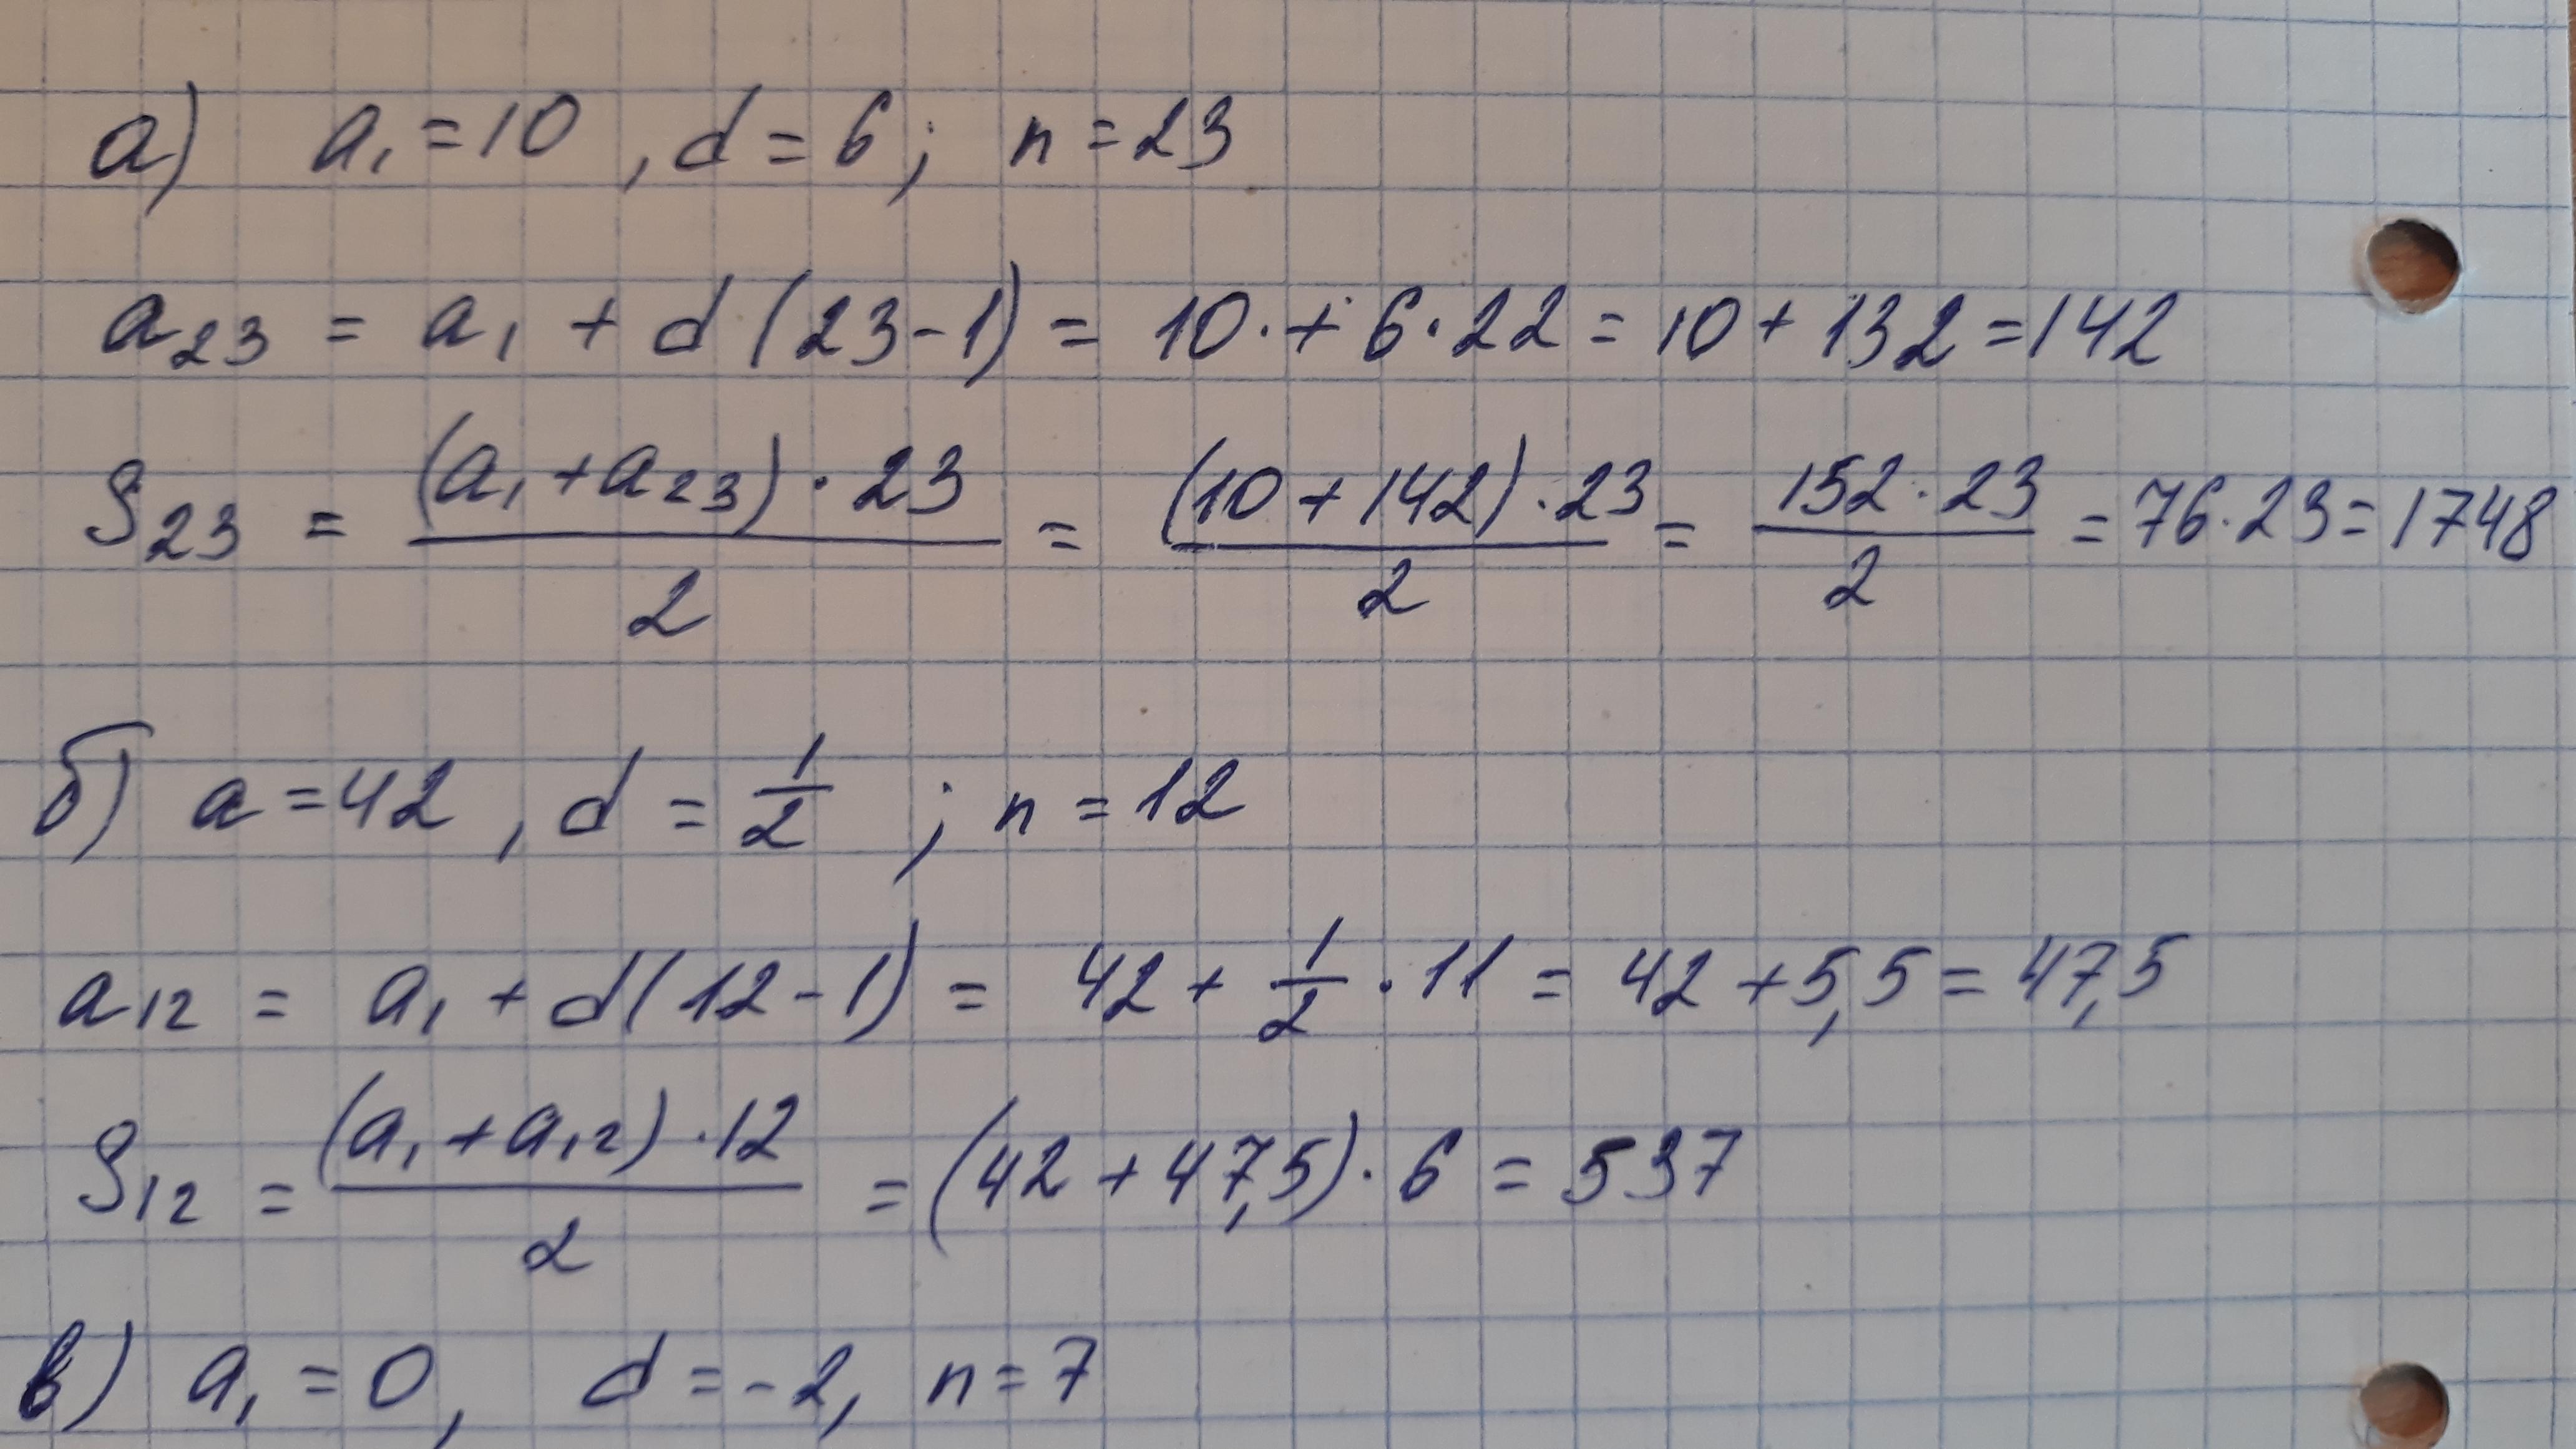 а) a₁ = 10, d = 6; n = 23
a₂₃ = a₁ + d (23 - 1) = 10 · + 6 · 22 = 10 + 132 = 142
S₂₃ = (a₁ + a₂₃) · 23 / 2 = (10 + 142) · 23 / 2 = 152 · 23 / 2 = 76 · 23 = 1748
б) a = 42, d = 1/2; n = 12
a₁₂ = a₁ + d (12 - 1) = 42 + 1/2 · 11 = 42 + 5,5 = 47,5
S₁₂ = (a₁ + a₁₂) · 12 / 2 = (42 + 47,5) · 6 = 537
в) a₁ = 0, d = -2, n = 7